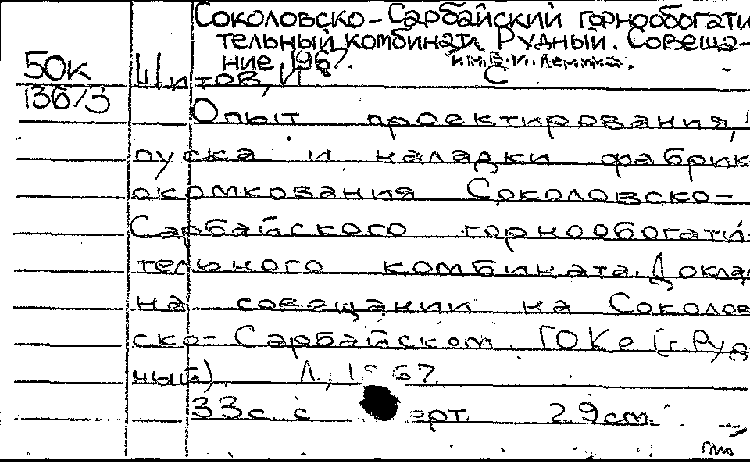 Соколовско-Сарбайский горнообогати
тельный комбинат. Рудный. Совеща-
ние, 196. им. В. И. Ленина.
50к Шитов, И С
136/3
Опыт проектирования,
пуска и наладки фабрик
окомкования Соколовско-
Сарбайского горнообогати-
тельного комбината. Докла
на совещании на Соколов
ско-Сарбайском ГОКе (г. Руд
ный). Л, 1967.
33с. с черт. 29см.